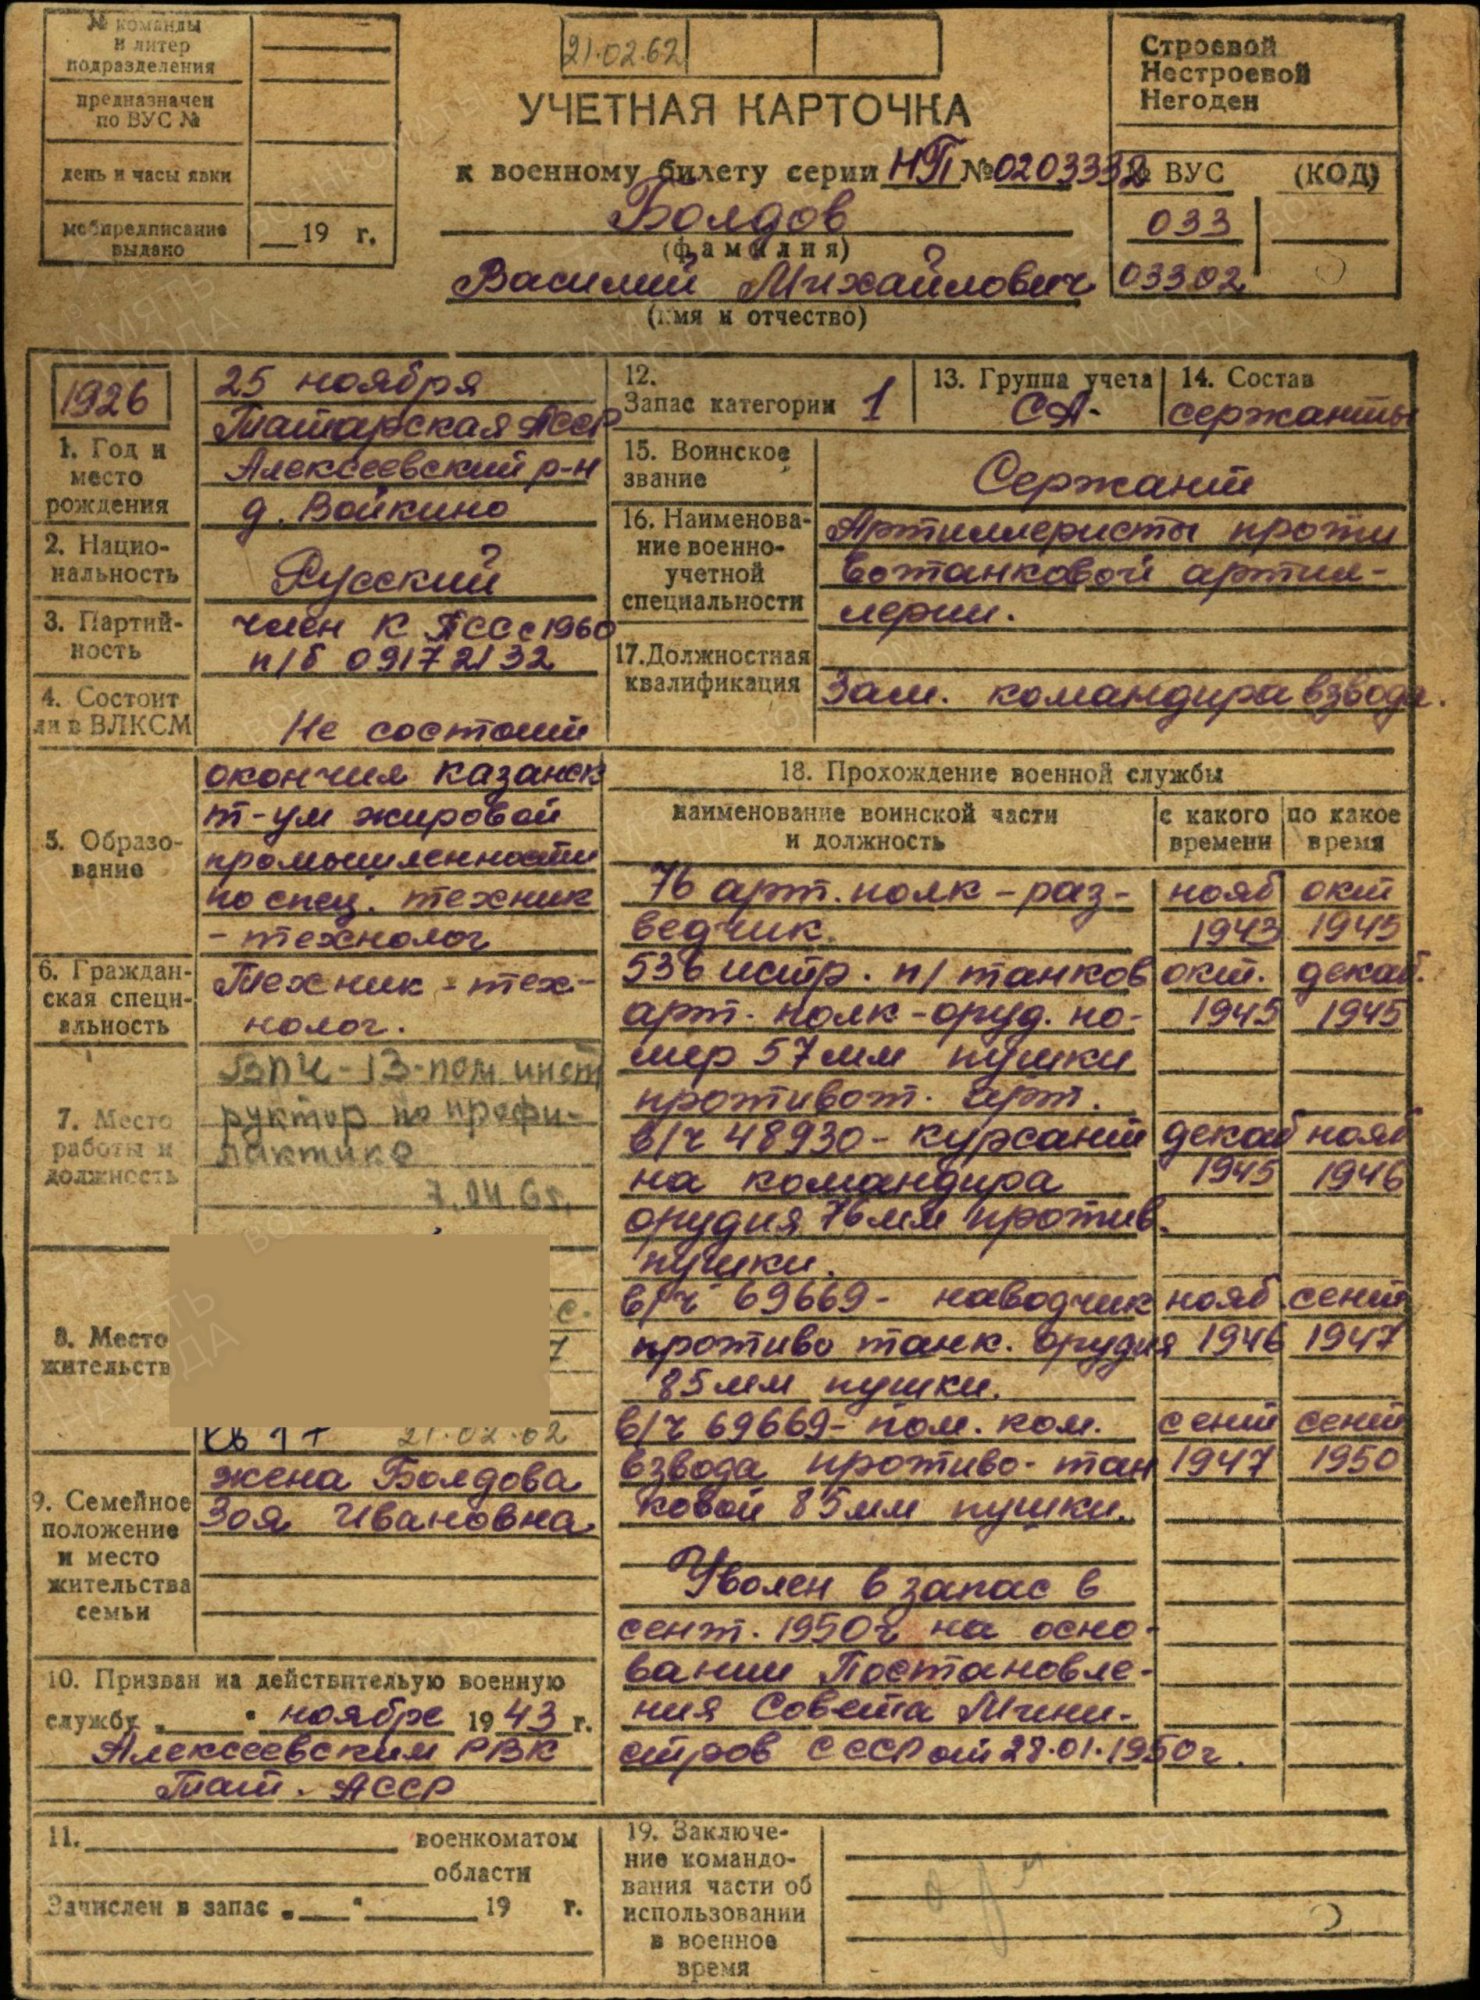 № команды
и литер
подразделения
предназначен
по ВУС №
день и часы явки
мобпредписание
выдано
19 г.
21.02.62
УЧЕТНАЯ КАРТОЧКА
к военному билету серии НП № 0203332
Болдов
(фамилия)
Василий Михайлович
(имя и отчество)
Строевой
Нестроевой
Негоден
№ ВУС (КОД)
033
03302
1926
1. Год и
место
рождения
25 ноября
Татарская АССР
Алексеевский р-н
д. Войкино
2. Нацио-
нальность
Русский
3. Партий-
ность
член КПСС с 1960
п/б 09172132
4. Состоит
ли в ВЛКСМ
Не состоит
5. Образо-
вание
окончил казанск
т-ум жировой
промышленности
по спец. техник
- технолог
6. Граждан-
ская специ-
альность
Техник - тех-
нолог.
7. Место
работы и
должность
ВПЧ-13-пом. инст
руктор по профи-
лактике
8. Место
жительств
21.02.62
9. Семейное
положение
и место
жительства
семьи
жена Болдова
Зоя Ивановна.
10. Призван на действительую военную
службу „ “ ноябре 1943 г.
Алексеевским РВК
Тат. АССР
11. военкоматом
области
Зачислен в запас „ “ 19 г.
12.
Запас категории 1
13. Группа учета
СА-
14. Состав
сержанты
15. Воинское
звание
Сержант
16. Наименова-
ние военно-
учетной
специальности
Артиллеристы проти
вотанковой артил-
лерии.
17. Должностная
квалификация
Зам. командира взвода.
18. Прохождение военной службы
наименование воинской части
и должность
с какого
времени
по какое
время
76 арт. полк - раз- нояб окт
ведчик. 1943 1945
536 истр. п/танков окт. декаб.
арт. полк - оруд. но- 1945 1945
мер 57мм пушки
противот. арт.
в/ч 48930 - курсант декаб нояб
на командира 1945 1946
орудия 76мм против.
пушки.
в/ч 69669 - наводчик нояб. сент
противо танк. орудия 1946 1947
85мм пушки.
в/ч 69669 - пом. ком. сент сент
взвода противо-тан 1947 1950
ковой 85мм пушки.
Уволен в запас в
сент. 1950г на осно-
вании Постановле-
ния Совета Мини-
стров СССР от 28.01.1950г.
19. Заключе-
ние командо-
вания части об
использовании
в военное
время